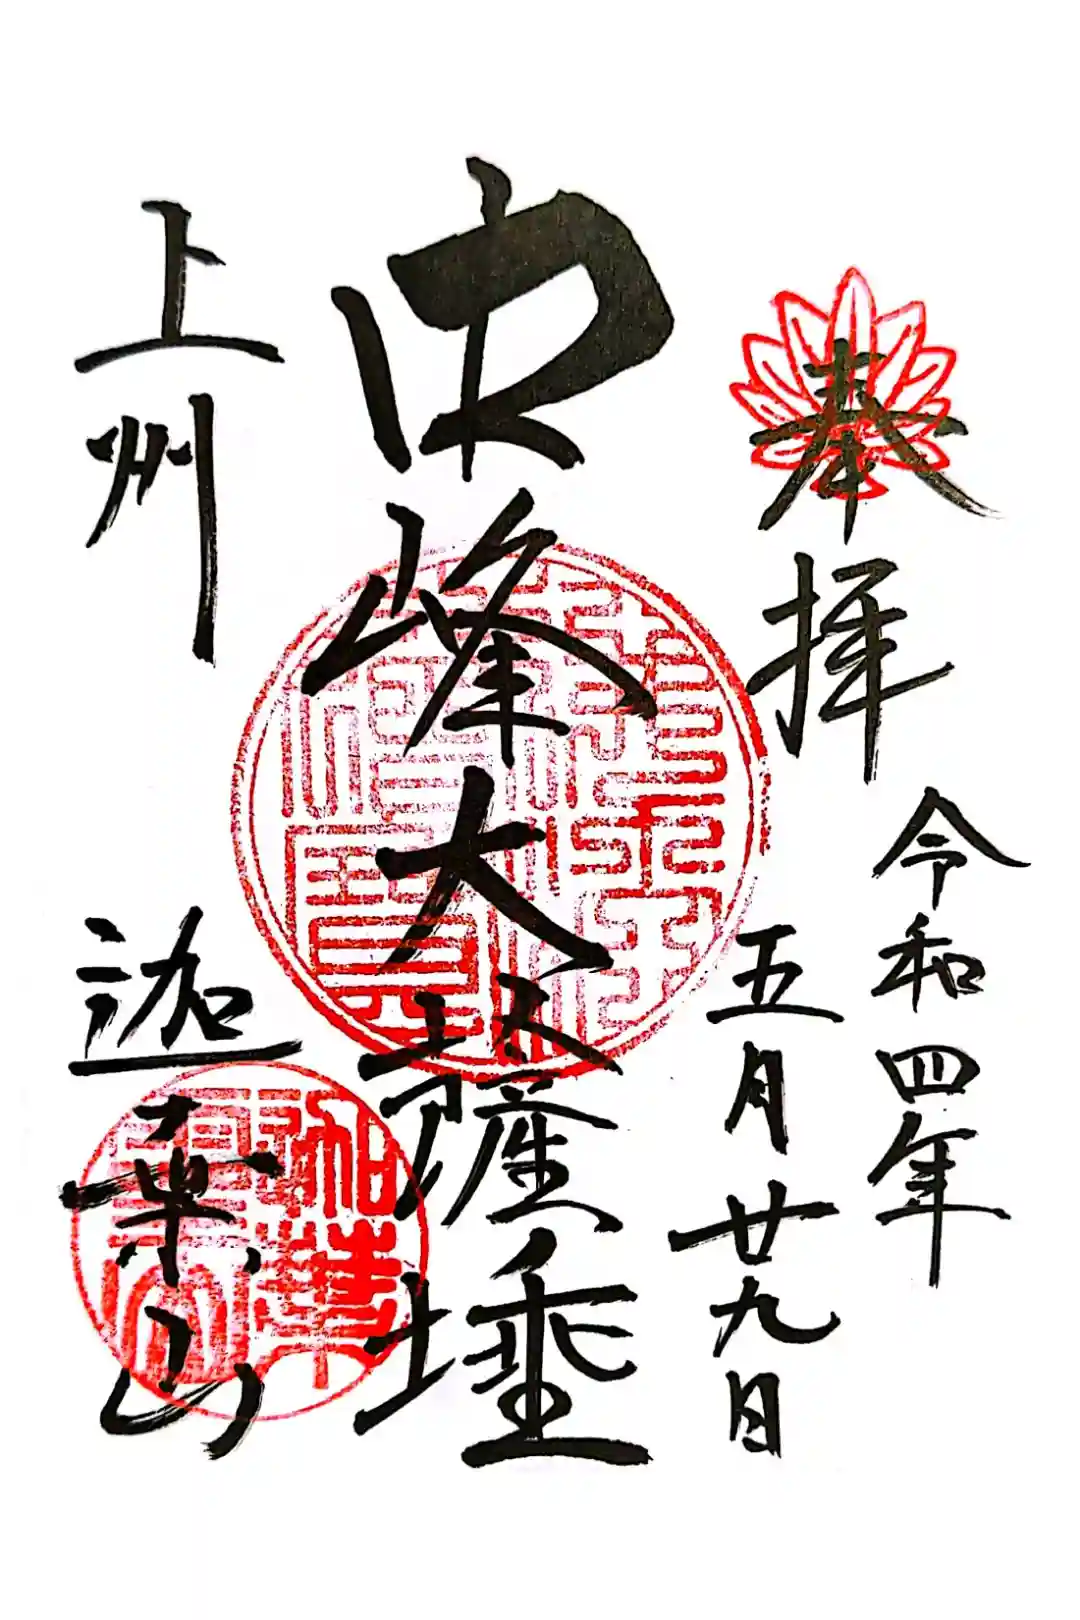 奉拝
令和四年
五月廿九日
中峰大薩埵
上州
迦葉山